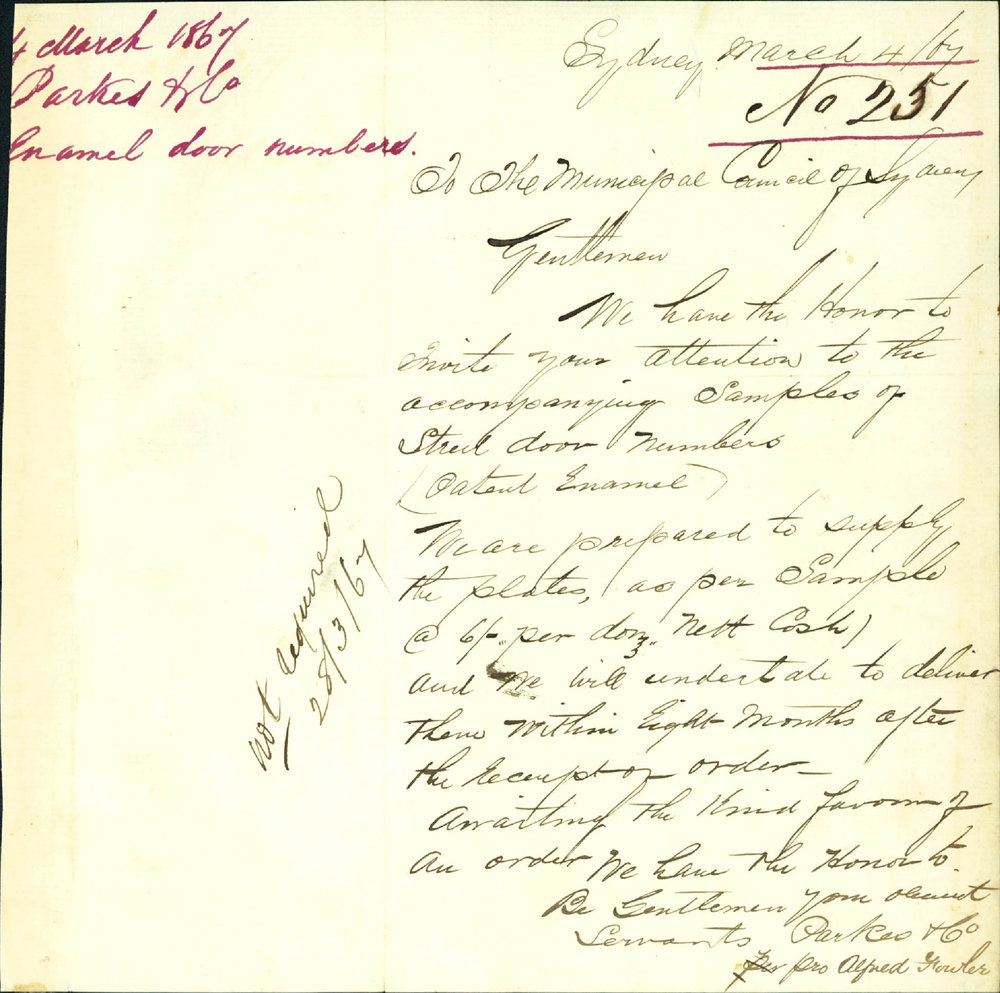 4 March 1867
Parkes & Co
Enamel door numbers.
Sydney March 4/67
No 251
To The Municipal Council of Sydney
Gentlemen
We have the Honor to
Invite your attention to the
accompanying Samples of
Street door Numbers
(Patent Enamel)
We are prepared to supply
the plates, as per Sample
@ 6/- per doz. Nett Cash)
and We will undertake to deliver
them Within Eight Months after
the receipt of order—
Awaiting the Kind favour of
an order We have the Honor to
Be Gentlemen your obedient
Servants Parkes & Co
per pro Alfred Fowler
not required
28/3/67